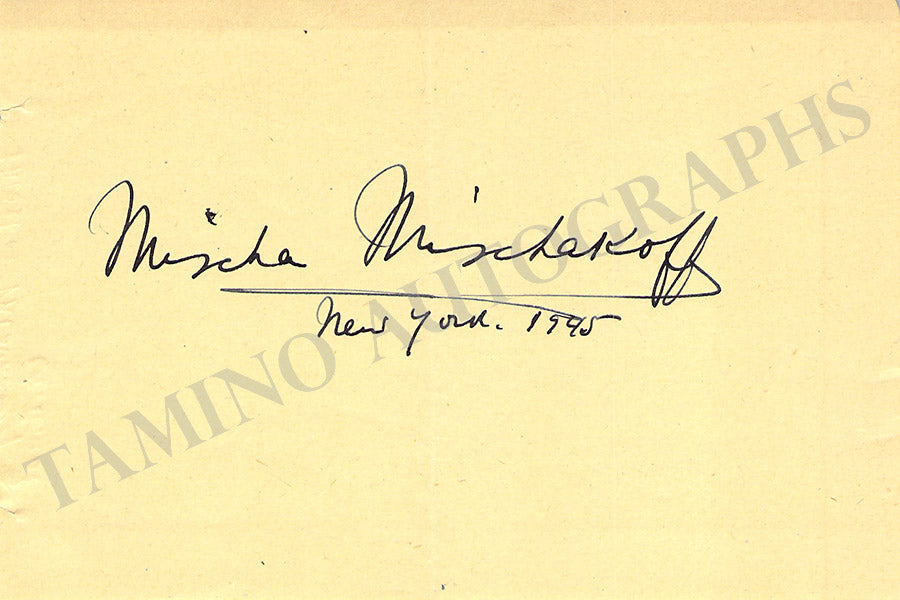 Mischa Mischakoff
New York. 1945
TAMINO AUTOGRAPHS